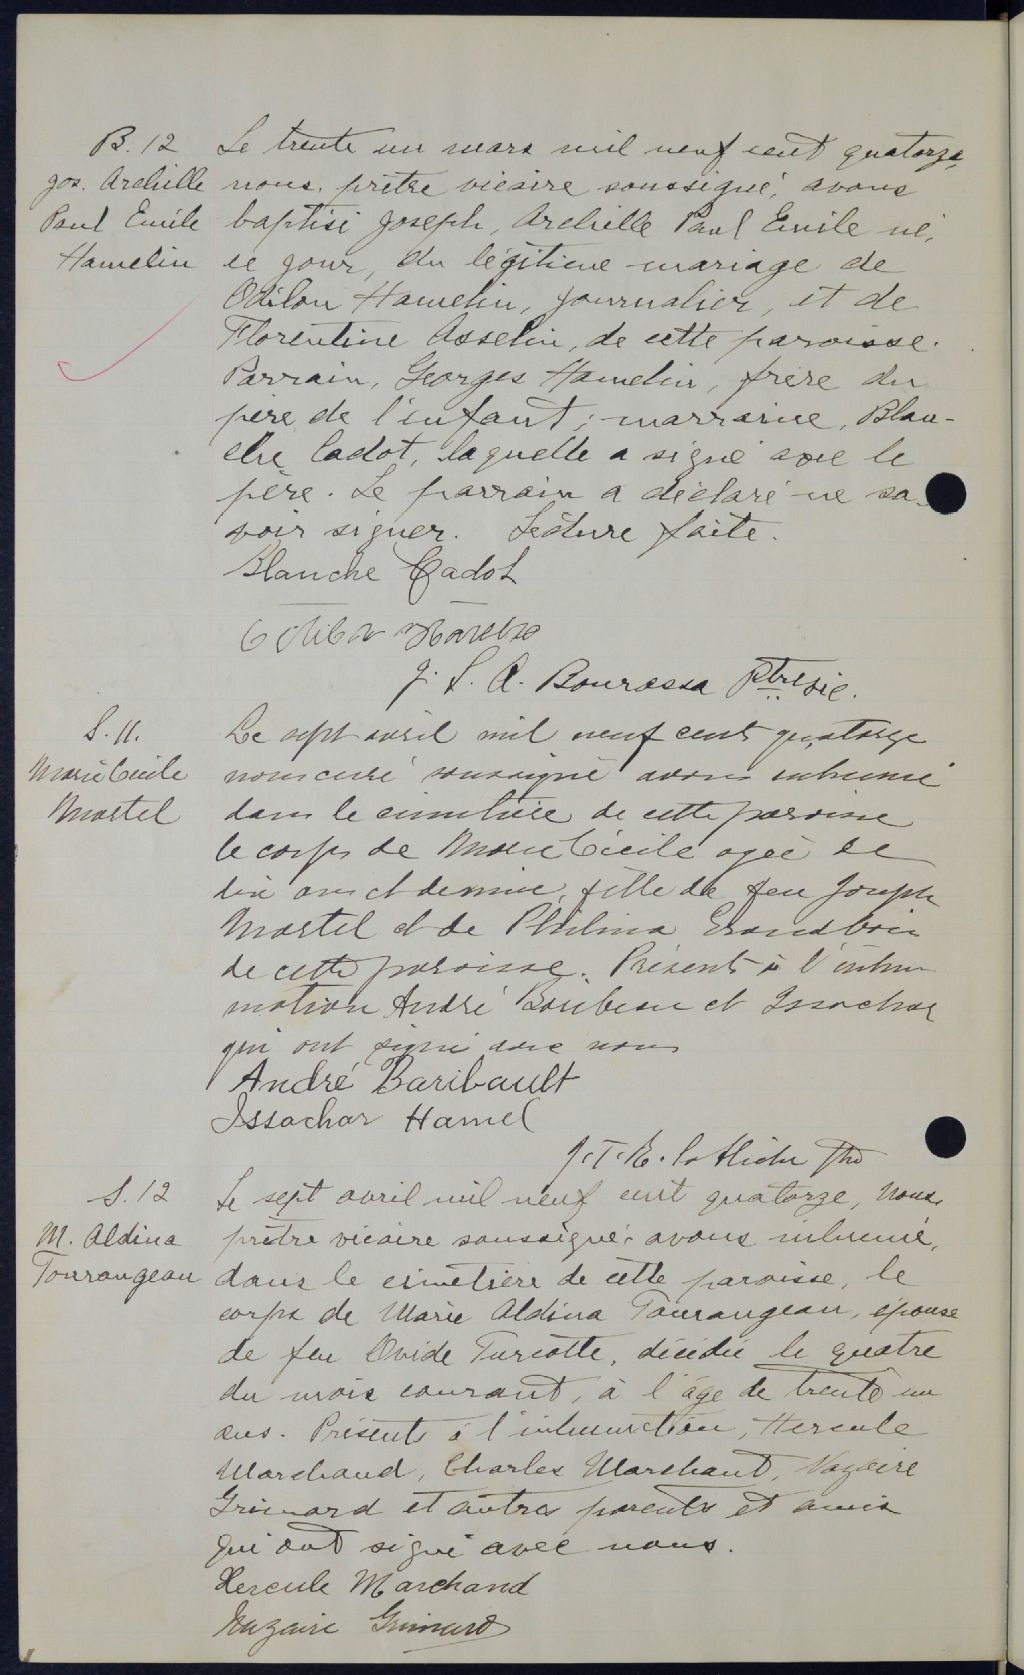 B. 12
Jos. Archille
Paul Emile
Hamelin
Le trente un mars mil neuf cent quatorze,
nous, prêtre vicaire soussigné, avons
baptisé Joseph, Archille Paul Emile né,
ce jour, du légitime mariage de
Odilon Hamelin, journalier, et de
Florentine Asselin, de cette paroisse.
Parrain, Georges Hamelin, frère du
père de l'enfant; marraine, Blan-
che Cadot, laquelle a signé avec le
père. Le parrain a déclaré ne sa-
voir signer. Lecture faite.
Blanche Cadot
Odilon
J. S. A. Bourassa Ptre vic.
S. 11.
Marie Cécile
Martel
Le sept avril mil neuf cent quatorze
nous curé soussigné avons inhumé
dans le cimetière de cette paroisse
le corps de Marie Cécile agée de
dix ans et demie, fille de feu Joseph
Martel et de Philina Grandbois
de cette paroisse. Présents à l'inhu-
mation André Baribeau et Issachar
qui ont signé avec nous
André Baribault
Issachar Hamel
J. T. E. Ptre
S. 12
M. Aldina
Tourangeau
Le sept avril mil neuf cent quatorze, nous,
prêtre vicaire soussigné, avons inhumé,
dans le cimetière de cette paroisse, le
corps de Marie Aldina Tourangeau, épouse
de feu Ovide Turcotte, décédée le quatre
du mois courant, à l'âge de trente un
ans. Présents à l'inhumation, Hercule
Marchand, Charles Marchant, Nazaire
Grimard et autres parents et amis
qui ont signé avec nous.
Hercule Marchand
Nazaire Grimard